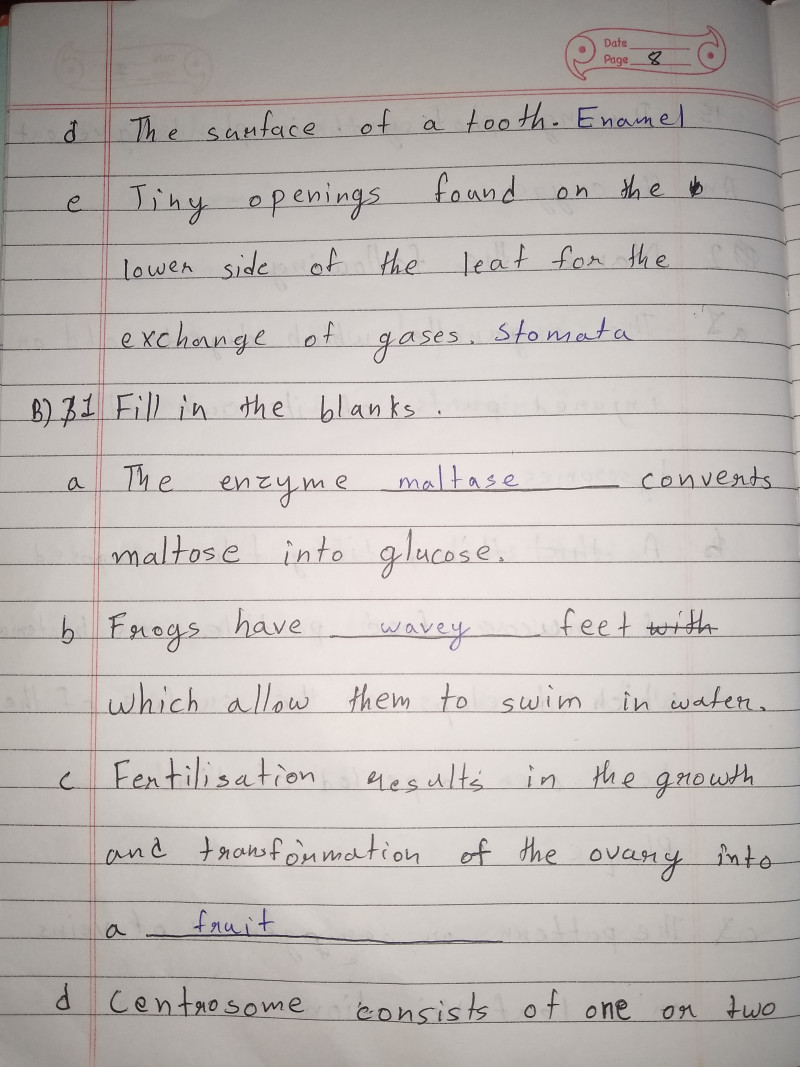 Date
Page 8
d The surface of a tooth. Enamel
e Tiny openings found on the
lower side of the leaf for the
exchange of gases. Stomata
B) 1 Fill in the blanks.
a The enzyme maltase converts
maltose into glucose.
b Frogs have wavey feet with
which allow them to swim in water.
c Fertilisation results in the growth
and transformation of the ovary into
a fruit
d Centrosome consists of one or two